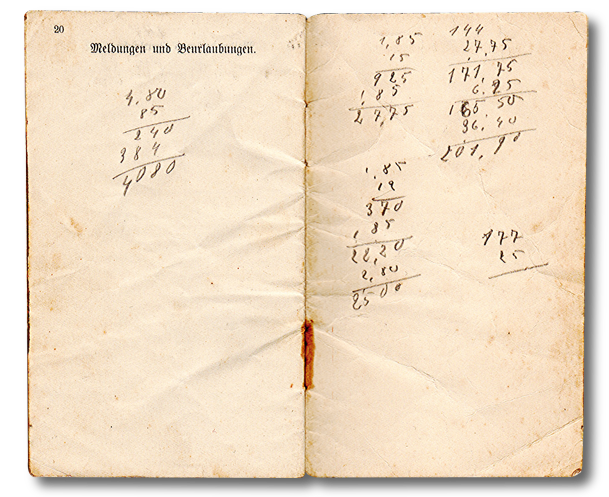 20
Meldungen und Beurlaubungen.
4,80
85
240
384
4080
1,85
15
925
1,85
27,75
144
27,75
171,75
6,25
165,50
36,40
201,90
1,85
12
370
1 85
22,20
2,80
2500
177
25